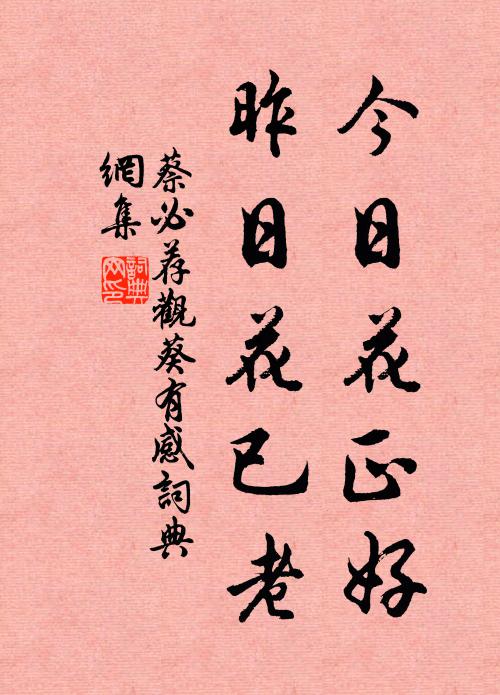 今日花正好
昨日花已老
蔡必荐觀葵有感詞典
網集
詞典網印